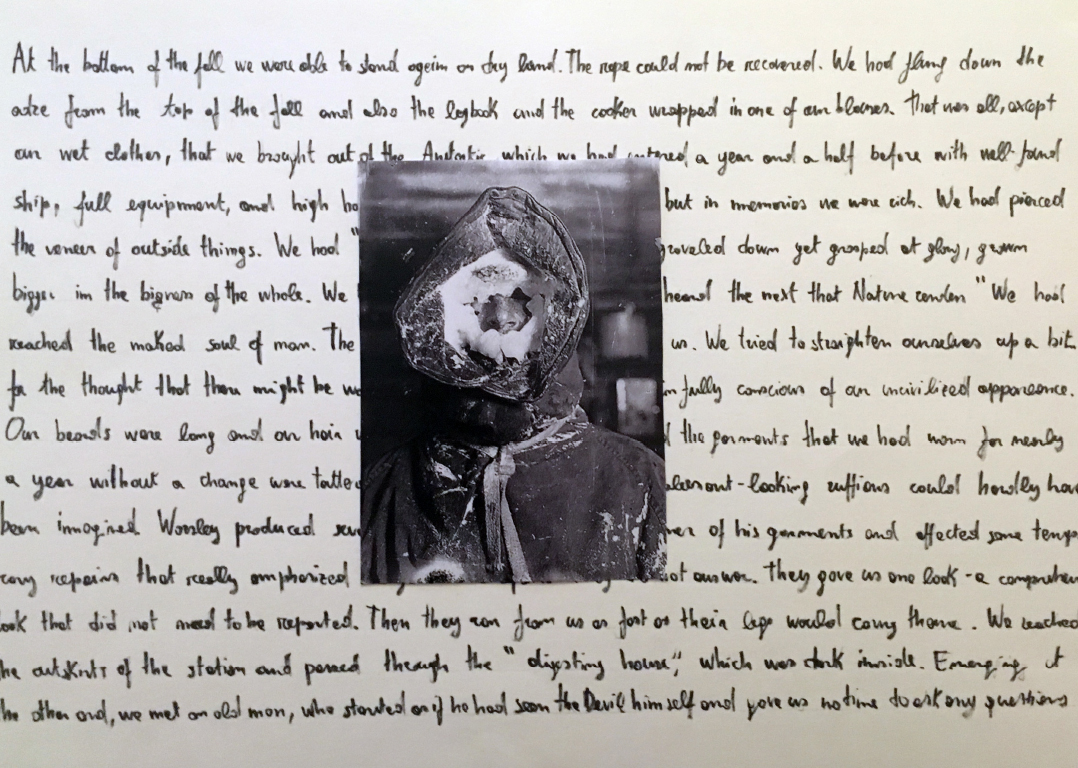 At the bottom of the fall we were able to stand again on dry land. The rope could not be recovered. We had flung down the
adze from the top of the fall and also the logbook and the cooker wrapped in one of our blouses. That was all, except
our wet clothes, that we brought out of the Antartic which we had entered a year and a half before with well-found
ship, full equipment, and high ho but in memories we were rich. We had pierced
the veneer of outside things. We had " groveled down yet grasped at glory, grown
bigger in the bigness of the whole. We heard the text that Nature renders " We had
reached the naked soul of man. The us. We tried to straighten ourselves up a bit
for the thought that there might be wo fully conscious of an uncivilized appearance.
Our beards were long and our hair the garments that we had worn for nearly
a year without a change were tatte -looking ruffians could hardly have
been imagined Worsley produced seve of his garments and effected some tempo
rary repairs that really emphasized not answer. They gave us one look - a comprehen
look that did not need to be repeated. Then they ran from us as fast as their legs would carry them. We reached
the outskirts of the station and passed through the "digesting house", which was dark inside. Emerging at
the other end, we met an old man, who started as if he had seen the Devil himself and gave us no time to ask any questions